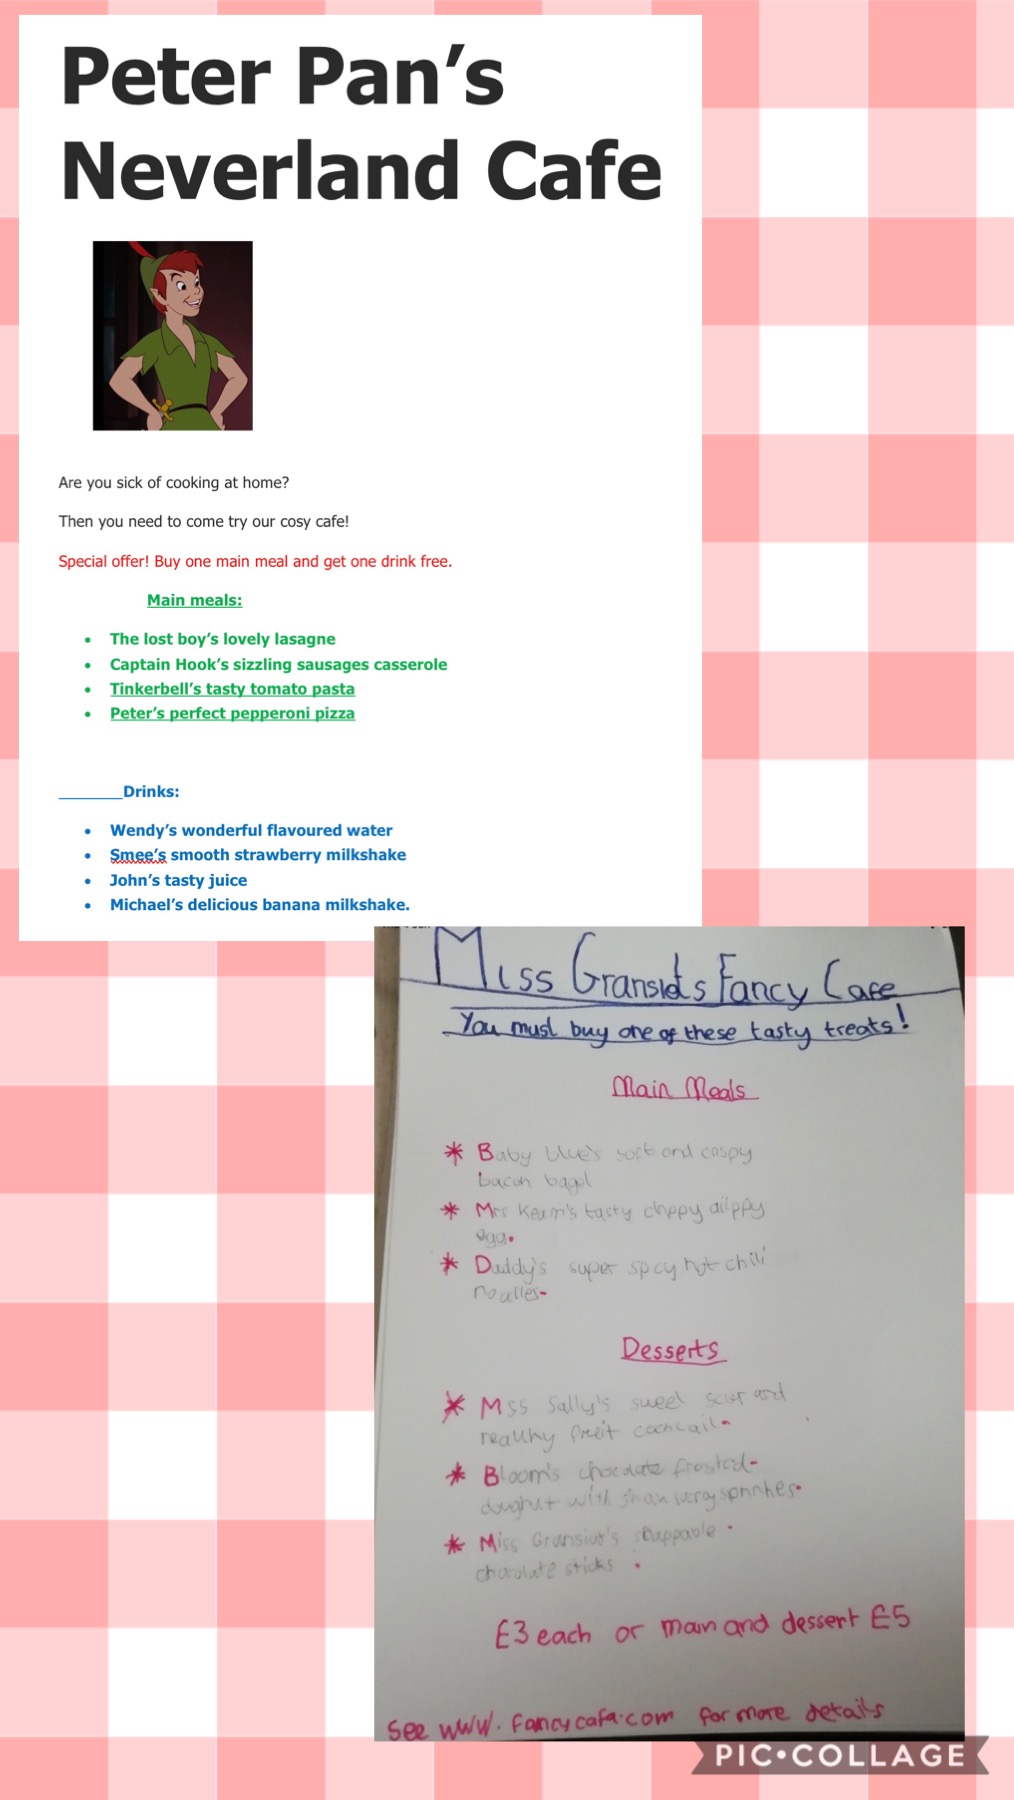 Peter Pan’s
Neverland Cafe
Are you sick of cooking at home?
Then you need to come try our cosy cafe!
Special offer! Buy one main meal and get one drink free.
Main meals:
• The lost boy’s lovely lasagne
• Captain Hook’s sizzling sausages casserole
• Tinkerbell’s tasty tomato pasta
• Peter’s perfect pepperoni pizza
_______Drinks:
• Wendy’s wonderful flavoured water
• Smee’s smooth strawberry milkshake
• John’s tasty juice
• Michael’s delicious banana milkshake.
Miss Fancy Cafe
You must buy one of these tasty treats!
Main Meals
* Baby blue's soft and
bacon bagel
* Mrs tasty
egg.
* Daddy's super hot chili
Desserts
* Sally's sweet and
* Bloom's chocolate frosted
with
* Miss
sticks.
£3 each or main and dessert £5
See www.fancycafa.com for more details
PIC•COLLAGE